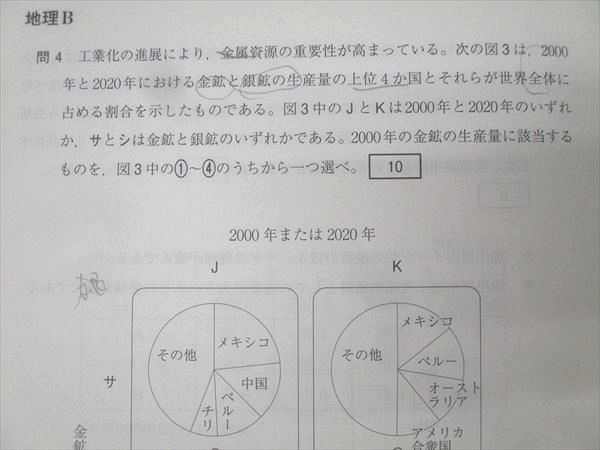 地理B
問4 工業化の進展により，金属資源の重要性が高まっている。次の図3は，2000
年と2020年における金鉱と銀鉱の生産量の上位4か国とそれらが世界全体に
占める割合を示したものである。図3中のJとKは2000年と2020年のいずれ
か，サとシは金鉱と銀鉱のいずれかである。2000年の金鉱の生産量に該当する
ものを，図3中の①～④のうちから一つ選べ。 10
2000年または2020年
J
K
サ
その他
メキシコ
中国
ペルー
チリ
その他
メキシコ
ペルー
オースト
ラリア
アメリカ
合衆国
金鉱